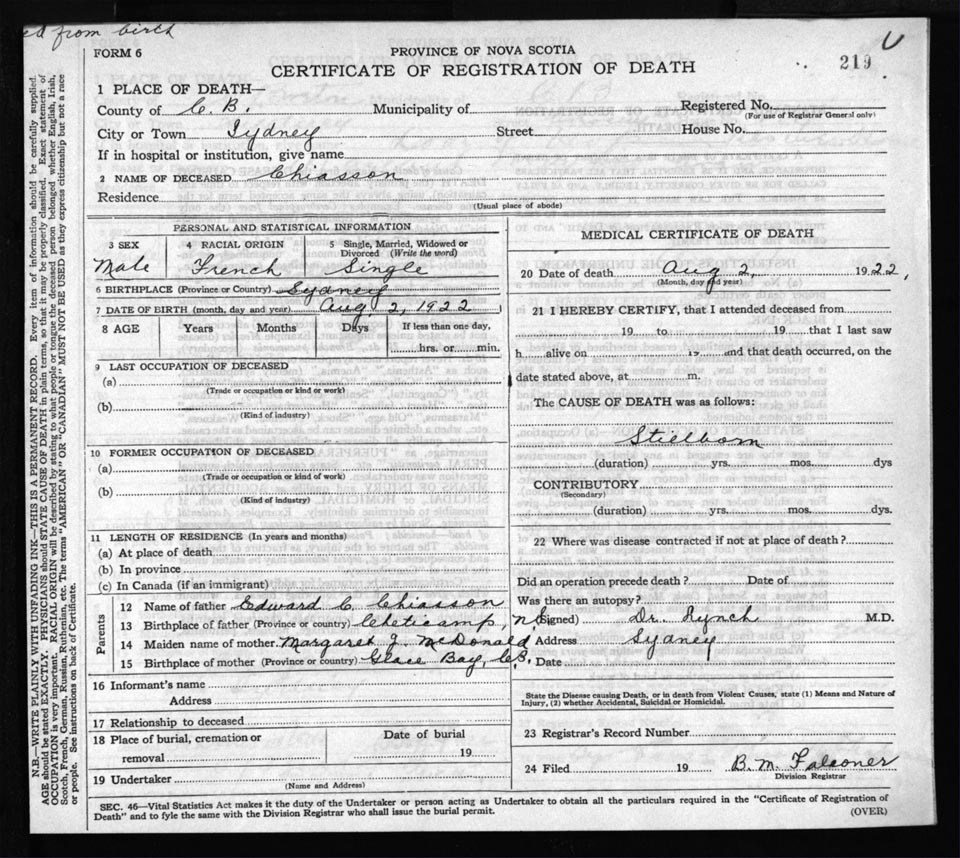 ed from birth
FORM 6
PROVINCE OF NOVA SCOTIA
CERTIFICATE OF REGISTRATION OF DEATH
219
1 PLACE OF DEATH—
County of C. B. Municipality of Registered No.
(For use of Registrar General only)
City or Town Sydney Street House No.
If in hospital or institution, give name
2 NAME OF DECEASED Chiasson
Residence
(Usual place of abode)
PERSONAL AND STATISTICAL INFORMATION
3 SEX 4 RACIAL ORIGIN 5 Single, Married, Widowed or Divorced (Write the word)
Male French Single
6 BIRTHPLACE (Province or Country) Sydney
7 DATE OF BIRTH (month, day and year) Aug. 2, 1922
8 AGE Years Months Days If less than one day,
hrs. or min.
9 LAST OCCUPATION OF DECEASED
(a)
(Trade or occupation or kind or work)
(b)
(Kind of industry)
10 FORMER OCCUPATION OF DECEASED
(a)
(Trade or occupation or kind of work)
(b)
(Kind of industry)
11 LENGTH OF RESIDENCE (In years and months)
(a) At place of death
(b) In province
(c) In Canada (if an immigrant)
Parents
12 Name of father Edward C. Chiasson
13 Birthplace of father (Province or country) Cheticamp, N.S.
14 Maiden name of mother Margaret J. McDonald
15 Birthplace of mother (Province or country) Glace Bay, C.B.
16 Informant's name
Address
17 Relationship to deceased
18 Place of burial, cremation or removal Date of burial
19
19 Undertaker
(Name and Address)
MEDICAL CERTIFICATE OF DEATH
20 Date of death Aug 2, 1922,
(Month, day and year)
21 I HEREBY CERTIFY, that I attended deceased from
19 to 19 that I last saw
h alive on 19 and that death occurred, on the
date stated above, at m.
The CAUSE OF DEATH was as follows:
Stillborn
(duration) yrs. mos. dys
CONTRIBUTORY
(Secondary)
(duration) yrs. mos. dys.
22 Where was disease contracted if not at place of death?
Did an operation precede death? Date of
Was there an autopsy?
(Signed) Dr. Lynch M.D.
Address Sydney
Date
State the Disease causing Death, or in death from Violent Causes, state (1) Means and Nature of
Injury, (2) whether Accidental, Suicidal or Homicidal.
23 Registrar's Record Number
24 Filed 19 B. M. Falconer
Division Registrar
SEC. 46—Vital Statistics Act makes it the duty of the Undertaker or person acting as Undertaker to obtain all the particulars required in the "Certificate of Registration of
Death" and to fyle the same with the Division Registrar who shall issue the burial permit. (OVER)
N.B.—WRITE PLAINLY WITH UNFADING INK—THIS IS A PERMANENT RECORD. Every item of information should be carefully supplied.
AGE should be stated EXACTLY. PHYSICIANS should STATE CAUSE OF DEATH in plain terms, so that it may be properly classified. Exact statement of
OCCUPATION is very important. RACIAL ORIGIN will be described by stating to what people or tongue the deceased person belonged whether English, Irish,
Scotch, French, German, Russian, Ruthenian, etc. The terms "AMERICAN" OR "CANADIAN" MUST NOT BE USED as they express citizenship but not a race
or people. See instructions on back of Certificate.